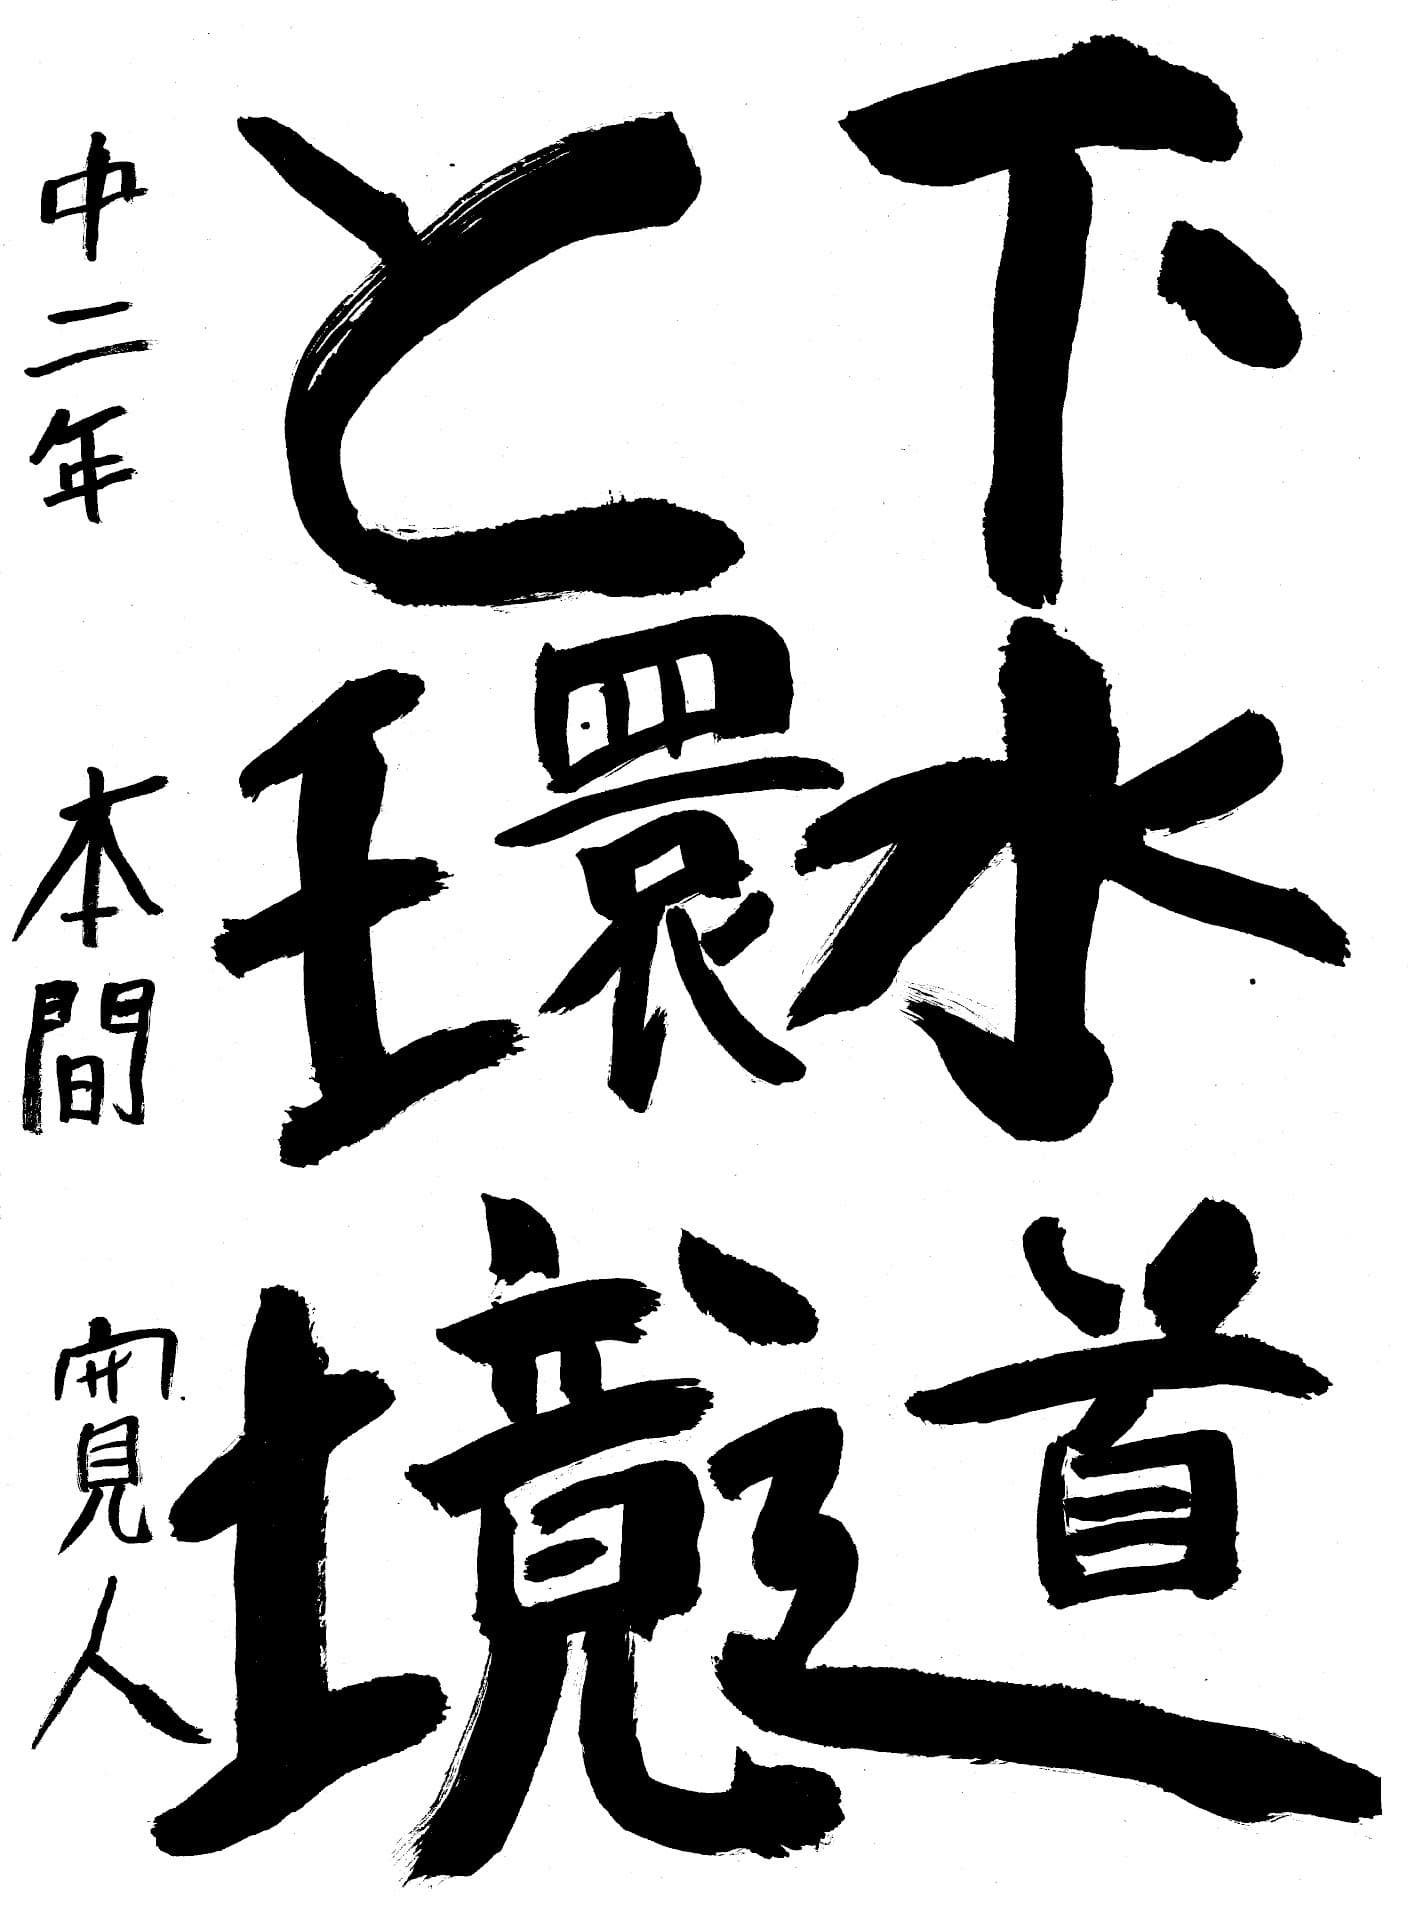 下水道
と環境
中二年 本間 寛人